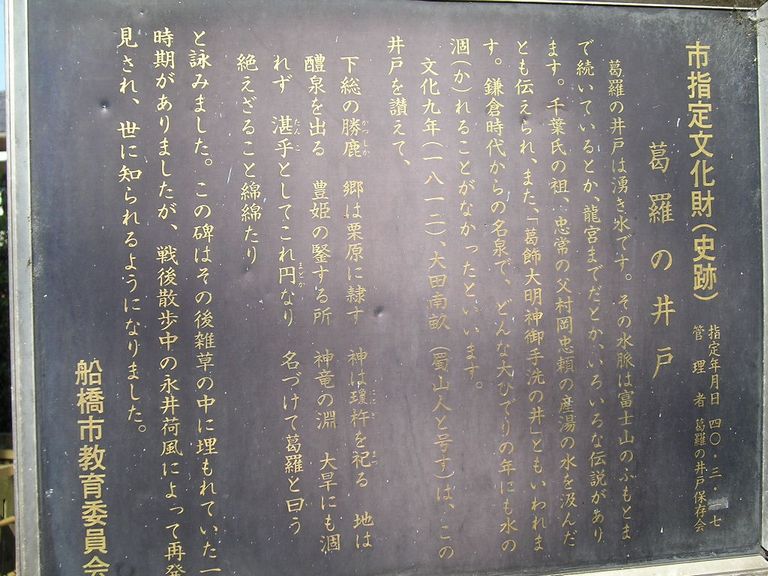 市指定文化財(史跡)
葛羅の井戸
指定年月日 四〇・三・一七
管理者 葛羅の井戸保存会
葛羅の井戸は湧き水です。その水脈は富士山のふもとま
で続いているとか、龍宮までだとか、いろいろな伝説があり
ます。千葉氏の祖、忠常の父村岡忠頼の産湯の水を汲んだ
とも伝えられ、また、「葛飾大明神御手洗の井」ともいわれま
す。鎌倉時代からの名泉で、どんな大ひでりの年にも水の
涸(か)れることがなかったといいます。
文化九年(一八一二)、大田南畝(蜀山人と号す)は、この
井戸を讃えて、
下総の勝鹿 郷は栗原に隷す 神は瓊杵を祀る 地は
かつしか
醴泉を出る 豊姫の鑿する所 神竜の淵 大旱にも涸
れず 湛乎としてこれ円なり 名づけて葛羅と曰う
たんこ まどか
絶えざること綿綿たり
と詠みました。この碑はその後雑草の中に埋もれていた一
時期がありましたが、戦後散歩中の永井荷風によって再発
見され、世に知られるようになりました。
船橋市教育委員会